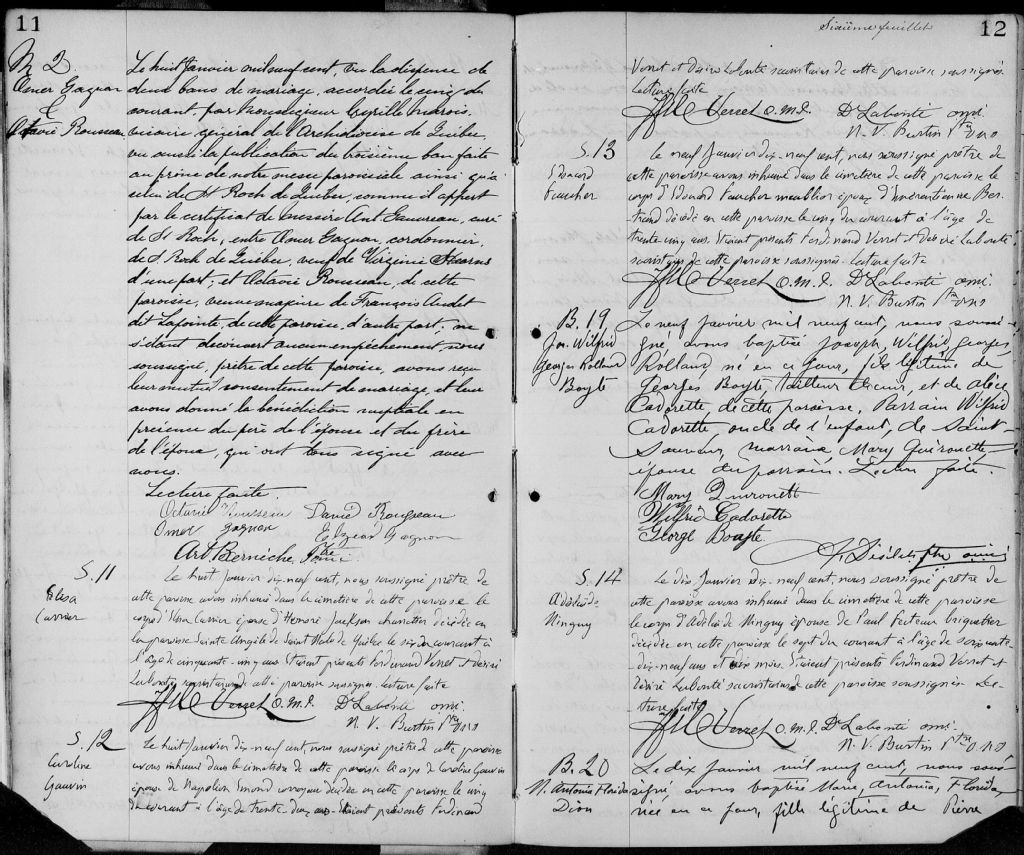 11
M 2
Omer Gagnon
&
Octavie Rousseau
Le huit Janvier mil neuf cent, vu la dispense de
deux bans de mariage, accordée le cinq du
courant, par Monseigneur Cyrille Marois,
vicaire général de l'Archidiocèse de Québec,
vu aussi la publication du troisième ban faite
au prône de notre messe paroissiale ainsi qu'à
celui de St Roch de Québec, comme il appert
par le certificat de messire Ant. Gauvreau, curé
de St Roch, entre Omer Gagnon, cordonnier,
de St Roch de Québec, veuf de Virginie
d'une part; et Octavie Rousseau, de cette
paroisse, veuve majeure de François Audet
dit Lapointe, de cette paroisse, d'autre part; ne
s'étant découvert aucun empêchement, nous
soussigné, prêtre de cette paroisse, avons reçu
leur mutuel consentement de mariage, et leur
avons donné la bénédiction nuptiale en
présence du père de l'épouse et du frère
de l'époux, qui ont tous signé avec
nous.
Lecture faite.
Octavie Rousseau David Rousseau
Omer Gagnon Elzear Gagnon
Art Bernèche, Ptre
S. 11
Elisa
Carrier
Le huit Janvier dix-neuf cent, nous soussigné prêtre de
cette paroisse avons inhumé dans le cimetière de cette paroisse le
corps d'Elisa Carrier épouse d'Honoré Jackson charretier décédée en
la paroisse Sainte Angèle de Saint Malo de Québec le six du courant à
l'âge de cinquante-cinq ans. Etaient présents Ferdinand Verret et Désiré
Labonté sacristains de cette paroisse soussignés. Lecture faite
Verret O.M.I. D. Labonté omi.
N. V. Burtin Ptre O M I
S. 12
Caroline
Gauvin
Le huit Janvier dix-neuf cent, nous soussigné prêtre de cette paroisse
avons inhumé dans le cimetière de cette paroisse le corps de Caroline Gauvin
épouse de Napoléon Emond corroyeur décédée en cette paroisse le cinq
du courant à l'âge de trente-deux ans. Etaient présents Ferdinand
Sixième feuillet
12
Verret et Désiré Labonté sacristains de cette paroisse soussignés.
Lecture faite
Verret O.M.I. D. Labonté omi.
N. V. Burtin Ptre O M I
S. 13
Edouard
Faucher
Le neuf Janvier dix-neuf cent, nous soussigné prêtre de
cette paroisse avons inhumé dans le cimetière de cette paroisse le
corps d'Edouard Faucher meublier époux d'Emérentienne Ber-
trand décédé en cette paroisse le cinq du courant à l'âge de
trente-cinq ans. Etaient présents Ferdinand Verret et Désiré Labonté
sacristains de cette paroisse soussignés. Lecture faite
Verret O.M.I. D. Labonté omi.
N. V. Burtin Ptre O M I
B. 19
Jos. Wilfrid
Georges Rolland
Boyte
Le neuf Janvier mil neuf cent, nous soussi-
gné avons baptisé Joseph, Wilfrid, Georges,
Rolland né en ce jour, fils légitime de
Georges Boyte, tailleur de cuir, et de Alice
Cadorette, de cette paroisse. Parrain Wilfrid
Cadorette, oncle de l'enfant, de Saint-
Sauveur, marraine Mary Guironette,
épouse du parrain. Lecture faite.
Mary Duronett
Wilfrid Cadorette
George Boayte
ptre omi
S. 14
Adelaïde
Minguy
Le dix Janvier dix-neuf cent, nous soussigné prêtre de
cette paroisse avons inhumé dans le cimetière de cette paroisse
le corps d'Adelaïde Minguy épouse de Paul Fecteau briquetier
décédée en cette paroisse le sept du courant à l'âge de soixante-
dix-neuf ans et dix mois. Etaient présents Ferdinand Verret et
Désiré Labonté sacristains de cette paroisse soussignés. Lec-
ture faite
Verret O.M.I. D. Labonté omi.
N. V. Burtin Ptre O M I
B. 20
M. Antonia Florida
Dion
Le dix Janvier mil neuf cent, nous sous-
signé, avons baptisé Marie, Antonia, Florida,
née en ce jour, fille légitime de Pierre